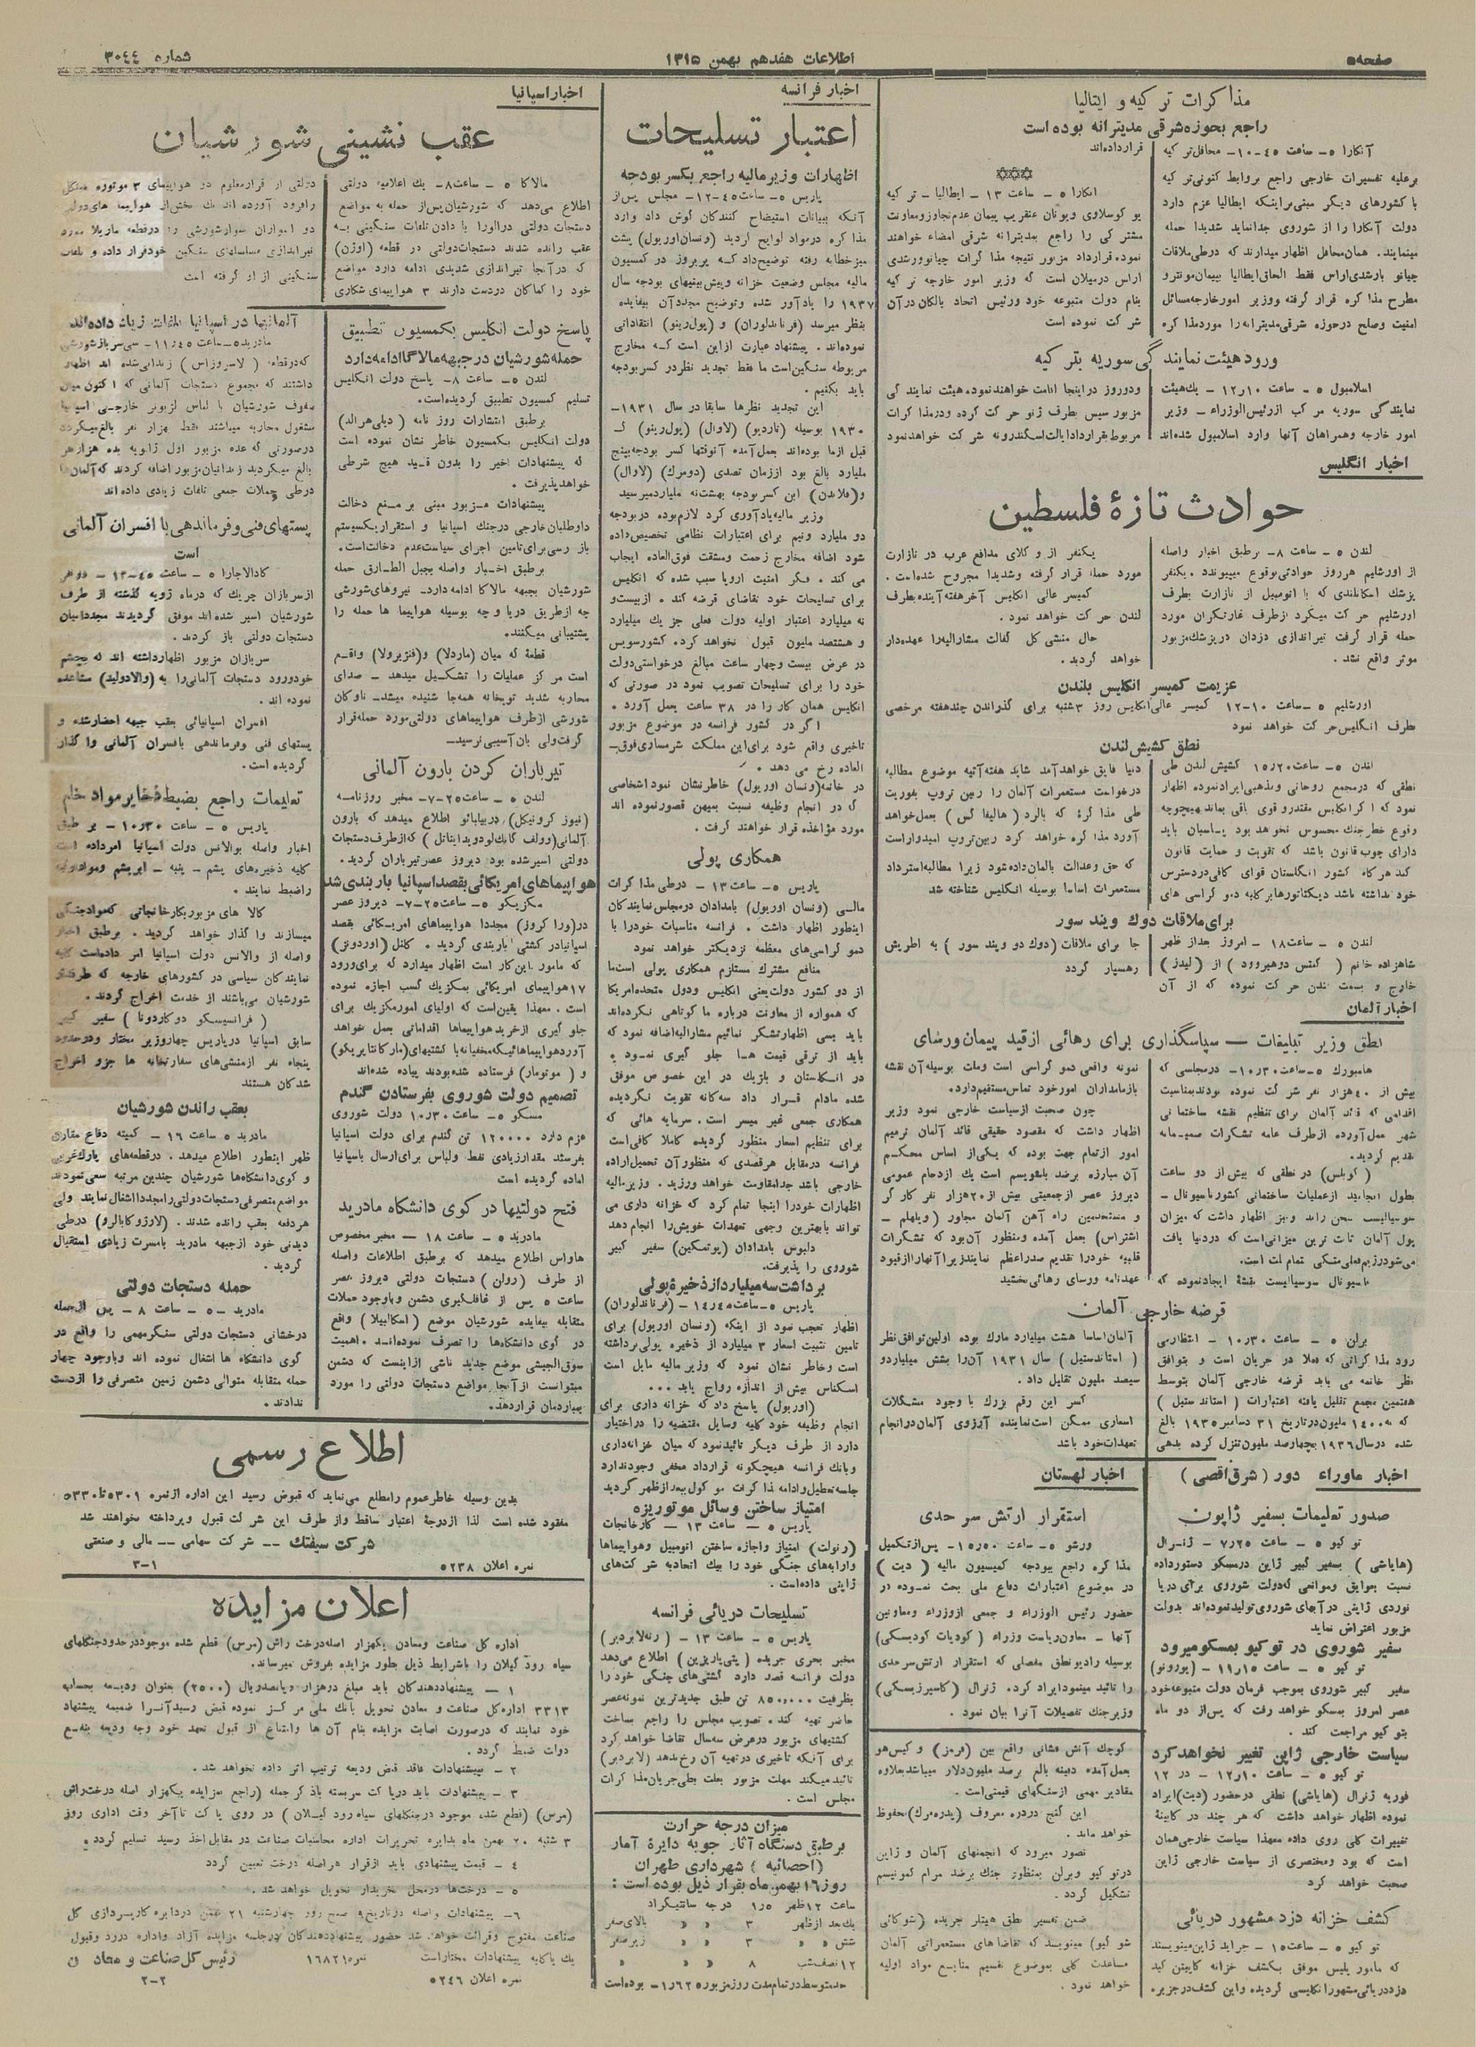 صفحه ۵
اطلاعات هفدهم بهمن ۱۳۱۵
شماره ۳۰۴۴
مذاکرات ترکیه و ایتالیا
راجع بحوزه شرقی مدیترانه بوده است
آنکارا ۵ ــ ساعت ۴۵-۱۰ــ محافل ترکیه
برعلیه تفسیرات خارجی راجع بروابط کنونی ترکیه
با کشورهای دیگر مبنی براینکه ایطالیا عزم دارد
دولت آنکارا را از شوروی جدا نماید شدیدا حمله
مینمایند. همان محافل اظهار میدارند که درطی ملاقات
مطرح مذاکره قرار گرفته ووزیر امور خارجه مسائل
امنیت وصلح درحوزه شرقی مدیترانه را مورد مذاکره
قرارداده‌اند
آنکارا ۵ ــ ساعت ۱۳ ــ ایطالیا ــ ترکیه
یوگوسلاوی ویونان عنقریب پیمان عدم تجاوز ومعاونت
مشترکی را راجع بمدیترانه شرقی امضاء خواهند
نمود. قرارداد مزبور نتیجه مذاکرات چیانو ورشدی
اراس درمیلان است که وزیر امور خارجه ترکیه
بنام دولت متبوعه خود ورئیس اتحاد بالکان در آن
شرکت نموده است
ورود هیئت نمایندگی سوریه بترکیه
اسلامبول ۵ ــ ساعت ۱۲٫۱۰ ــ یک هیئت
نمایندگی سوریه مرکب از رئیس الوزراء ــ وزیر
امور خارجه وهمراهان آنها وارد اسلامبول شده‌اند
ودو روز در اینجا اقامت خواهند نمود. هیئت نمایندگی
مزبور سپس بطرف ژنو حرکت کرده ودر مذاکرات
مربوط بقرارداد ایالت اسکندرونه شرکت خواهد نمود
اخبار انگلیس
حوادث تازهٔ فلسطین
لندن ۵ ــ ساعت ۸ــ برطبق اخبار واصله
از اورشلیم هرروز حوادثی بوقوع میپیوندد. یکنفر
پزشک اسکاتلندی که با اتومبیل از نازارت بطرف
اورشلیم حرکت میکرد از طرف غارتگران مورد
حمله قرار گرفت تیراندازی دزدان درپزشک مزبور
موثر واقع نشد.
یکنفر از وکلای مدافع عرب در نازارت
مورد حمله قرار گرفته وشدیدا مجروح شده است.
کمیسر عالی انگلیس آخر هفته آینده بطرف
لندن حرکت خواهد نمود.
حال منشی کل کفالت مشارالیه را عهده‌دار
خواهد گردید.
عزیمت کمیسر انگلیس بلندن
اورشلیم ۵ ــ ساعت ۱۰-۱۲ کمیسر عالی انگلیس روز ۳شنبه برای گذراندن چند هفته مرخصی
طرف انگلیس حرکت خواهد نمود
نطق کشیش لندن
لندن ۵ ــ ساعت ۱۵٫۲۰ کشیش لندن طی
نطقی که درمجمع روحانی ومذهبی ایراد نموده اظهار
نمود که اگر انگلیس مقتدر وقوی باقی بماند هیچوجه
وقوع خطر جنک محسوس نخواهد بود پاسبان باید
دارای چوب قانون باشد که تقویت و حمایت قانون
کند هرگاه کشور انگلستان قوای کافی دردسترس
خود نداشته باشد دیکتاتورها برکابه دموکراسی های
دنیا فایق خواهد آمد شاید هفته آتیه موضوع مطالبه
درخواست مستعمرات آلمان را ربن تروپ بفوریت
طی مذاکره که بالرد (هالیفاکس) بعمل خواهد
آورد مذاکره خواهد کرد ربن تروپ امیدوار است
که حق وعدالت بالمان داده شود زیرا مطالبه استرداد
مستعمرات اساسا بوسیله انگلیس شناخته شد
برای ملاقات دوک ویندسور
لندن ۵ ــ ساعت ۱۸ــ امروز بعد از ظهر
شاهزاده خانم (کنتس دوهیروود) از (لیدز)
خارج و بسمت لندن حرکت نموده که از آن
جا برای ملاقات (دوک دو ویندسور) به اطریش
رهسپار گردد
اخبار آلمان
نطق وزیر تبلیغات ــ سپاسگذاری برای رهائی از قید پیمان ورسای
هامبورک ۵ــ ساعت ۱۰٫۳۰ــ درمجلسی که
بیش از ۴۰هزار نفر شرکت نموده بودند بمناسبت
اقدامی که قائد آلمان برای تنظیم نقشه ساختمانی
شهر بعمل آورده از طرف عامه تشکرات صمیمانه
تقدیم گردید.
(گوبلس) در نطقی که بیش از دو ساعت
پول آلمان ثابت ترین میزانی است که دردنیا یافت
ناسیونال سوسیالیست نقشهٔ ایجاد نموده که
نمونه واقعی دموکراسی است وملت بوسیله آن نقشه
بازمامداران امور خود تماس مستقیم دارد.
چون صحبت از سیاست خارجی نمود وزیر
اظهار داشت که مقصود حقیقی قائد آلمان ترمیم
امور از تمام جهت بوده که یکی از اساس محکم
آن مبارزه برضد بلشویسم است یک ازدحام عمومی
دیروز عصر از جمعیتی بیش از ۲۰هزار نفر کارگر
و مستخدمین راه آهن آلمان مجاور (ویلهلم ــ
اشتراس) بعمل آمده ومنظور آن بود که تشکرات
قلبیه خود را تقدیم صدراعظم نمایند زیرا آنها را از قیود
عهدنامه ورسای رهائی بخشید
قرضه خارجی آلمان
برلن ۵ ــ ساعت ۱۰٫۳۰ ــ انتظار می
رود مذاکراتی که فعلا در جریان است و بتوافق
نظر خاتمه می یابد قرضه خارجی آلمان بتوسط
هفتمین مجمع تقلیل یافته اعتبارات (استاند ستیل)
که به ۱۴۰۰ ملیون در تاریخ ۳۱ دسامبر ۱۹۳۵ بالغ
شده درسال ۱۹۳۶ بچهارصد ملیون تنزل کرده بدهی
آلمان اساسا هشت ملیارد مارک بوده اولین توافق نظر
(استاندستیل) سال ۱۹۳۱ آن را بشش ملیارد و
سیصد ملیون تقلیل داد.
کسر این رقم بزرک با وجود مشکلات
اسعاری ممکن است نماینده آرزوی آلمان در انجام
تعهدات خود باشد
اخبار ماوراء دور (شرق اقصی)
صدور تعلیمات بسفیر ژاپون
توکیو ۵ ــ ساعت ۷٫۲۵ ــ ژنرال
(هایاشی) بسفیر کبیر ژاپن درمسکو دستور داده
نسبت بعوایق وموانعی که دولت شوروی برای دریا
نوردی ژاپنی در آبهای شوروی تولید نموده‌اند بدولت
مزبور اعتراض نماید
سفیر شوروی در توکیو بمسکو میرود
توکیو ۵ ــ ساعت ۱۱٫۱۵ــ (یورونو)
سفیر کبیر شوروی بموجب فرمان دولت متبوعه خود
عصر امروز بمسکو خواهد رفت که پس از دو ماه
بتوکیو مراجعت کند.
سیاست خارجی ژاپن تغییر نخواهد کرد
توکیو ۵ ــ ساعت ۱۲٫۱۰ ــ در ۱۲
فوریه ژنرال (هایاشی) نطقی درحضور (دیت) ایراد
نموده اظهار خواهد داشت که هر چند در کابینهٔ
تغییرات کلی روی داده معهذا سیاست خارجی همان
است که بود ومختصری از سیاست خارجی ژاپن
صحبت خواهد کرد
کشف خزانه دزد مشهور دریائی
توکیو ۵ ــ ساعت ۱۵ــ جراید ژاپن مینویسند
که مامور پلیس موفق بکشف خزانه کاپیتن کید
دزد دریائی مشهور انگلیسی گردیده واین کشف در جزیره
اخبار لهستان
استقرار ارتش سرحدی
ورشو ۵ ــ ساعت ۱۵٫۵۰ــ پس از تکمیل
مذاکره راجع ببودجه کمیسیون مالیه (دیت)
در موضوع اعتبارات دفاع ملی بحث نموده در
حضور رئیس الوزراء و جمعی از وزراء ومعاونین
آنها ــ معاون ریاست وزراء (کودیات کودیسکی)
بوسیله رادیو نطق مفصلی که استقرار ارتش سرحدی
را تائید مینمود ایراد کرد. ژنرال (کاسپرزیسکی)
وزیر جنک تفصیلات آنرا بیان نمود.
کوچک آتش فشانی واقع بین (فرمز) و کیس هو
بعمل آمده دفینه بالغ برصد ملیون دلار میباشد بعلاوه
مقادیر مهمی از سنگهای قیمتی است.
این گنج دردره معروف (پدره مرک) محفوظ
خواهد ماند.
تصور میرود که انجمنهای آلمان و ژاپن
درتوکیو وبرلن بمنظور جنک برضد مرام کمونیسم
تشکیل گردد.
ضمن تفسیر نطق هیتلر جریده (شوکائی
شوگیو) مینویسد که تقاضاهای مستعمراتی آلمان
مساعدت کلی بموضوع تقسیم منابع مواد اولیه
خواهد نمود.
اخبار فرانسه
اعتبار تسلیحات
اظهارات وزیر مالیه راجع بکسر بودجه
پاریس ۵ــ ساعت ۴۵-۱۲ــ مجلس پس از
آنکه ببیانات استیضاح کنندگان گوش داد وارد
مذاکره درمواد لوایح گردید (ونسان اوریول) پشت
میز خطابه رفته توضیح داد که پریروز در کمسیون
مالیه مجلس وضعیت خزانه وپیش بینیهای بودجه سال
۱۹۳۷ را یادآور شده وتوضیح مجدد آن بیفایده
بنظر میرسد (فرناندلوران) و (پول رینو) انتقاداتی
نموده‌اند. پیشنهاد عبارت از این است که مخارج
مربوطه سنگین است ما فقط تجدید نظر در کسر بودجه
باید بکنیم.
این تجدید نظرها سابقا در سال ۱۹۳۱-
۱۹۳۰ بوسیله (تاردیو) (لاوال) (پول رینو) که
قبل از ما بوده‌اند بعمل آمده آنوقتها کسر بودجه بپنج
ملیارد بالغ بود از زمان تصدی (دومرک) (لاوال)
و(فلاندن) این کسر بودجه بهشت نه ملیارد میرسید
وزیر مالیه یادآوری کرد لازم بوده دربودجه
دو ملیارد ونیم برای اعتبارات نظامی تخصیص داده
شود اضافه مخارج زحمت ومشقت فوق العاده ایجاب
می کند. فکر امنیت اروپا سبب شده که انگلیس
برای تسلیحات خود تقاضای قرضه کند. از بیست و
نه ملیارد اعتبار اولیه دولت فعلی جز یک ملیارد
و هشتصد ملیون قبول نخواهد کرد. کشور سویس
در عرض بیست وچهار ساعت مبالغ درخواستی دولت
خود را برای تسلیحات تصویب نمود در صورتی که
انگلیس همان کار را در ۳۸ ساعت بعمل آورد.
اگر در کشور فرانسه در موضوع مزبور
تاخیری واقع شود برای این مملکت شرمساری فوق
العاده رخ می دهد.
در خاتمه (ونسان اوریول) خاطرنشان نمود اشخاصی
که در انجام وظیفه نسبت بمیهن قصور نموده اند
مورد مؤاخذه قرار خواهند گرفت.
همکاری پولی
پاریس ۵ــ ساعت ۱۳ ــ درطی مذاکرات
مالی (ونسان اوریول) بامدادان درمجلس نمایندگان
اینطور اظهار داشت. فرانسه مناسبات خود را با
دموکراسی‌های معظمه نزدیکتر خواهد نمود
منافع مشترک مستلزم همکاری پولی است ما
از دو کشور دولت یعنی انگلیس ودول متحده امریکا
که همواره از معاونت درباره ما کوتاهی نکرده‌اند
باید بسی اظهار تشکر نمائیم مشارالیه اضافه نمود که
باید از ترقی قیمت ها جلوگیری نمود.
در انگلستان و بلژیک در این خصوص موفق
شده مادام قرار داد سه‌گانه تقویت نگردیده
همکاری جمعی غیر میسر است. سرمایه هائی که
برای تنظیم اسعار منظور گردیده کاملا کافی است
فرانسه درمقابل هرقصدی که منظور آن تحمیل اراده
خارجی باشد جدا مقاومت خواهد ورزید. وزیر مالیه
اظهارات خود را اینجا تمام کرد که خزانه داری می
تواند بابهترین وجهی تعهدات خویش را انجام دهد
دلبوس بامدادان (پوتمکین) سفیر کبیر
شوروی را پذیرفت.
برداشت سه میلیارد از ذخیرهٔ پولی
پاریس ۵ ــ ساعت ۱۴٫۴۵ــ (فرناندلوران)
اظهار تعجب نمود از اینکه (ونسان اوریول) برای
تامین تثبیت اسعار ۳ میلیارد از ذخیره پولی برداشته
است وخاطر نشان نمود که وزیر مالیه مایل است
اسکناس بیش از اندازه رواج یابد...
(اوریول) پاسخ داد که خزانه داری برای
انجام وظیفه خود کلیه وسایل مقتضیه را در اختیار
دارد از طرف دیگر تائید نمود که میان خزانه‌داری
وبانک فرانسه هیچگونه قرارداد مخفی وجود ندارد
جلسه تعطیل وادامه مذاکرات موکول ببعد از ظهر گردید
امتیاز ساختن وسائل موتوریزه
پاریس ۵ ــ ساعت ۱۳ ــ کارخانجات
(رنولت) امتیاز واجازه ساختن اتومبیل وهواپیماها
وارابه‌های جنگی خود را بیک اتحادیه شرکت‌های
ژاپنی داده است.
تسلیحات دریائی فرانسه
پاریس ۵ ــ ساعت ۱۳ ــ (رنه لابردیر)
مخبر بحری جریده (پتی پاریزین) اطلاع می‌دهد
دولت فرانسه قصد دارد کشتی‌های جنگی خود را
بظرفیت ۸۵۰٫۰۰۰ تن طبق جدیدترین نمونه عصر
حاضر تهیه کند. تصویب مجلس را راجع ساخت
کشتیهای مزبور درعرض سه‌سال تقاضا خواهد کرد
برای آنکه تاخیری درتهیه آن رخ ندهد (لابردیر)
تائید میکند مهلت مزبور بعلت بطی جریان مذاکرات
مجلس است.
میزان درجه حرارت
برطبق دستگاه آثار جویه دایرهٔ آمار
(احصائیه) شهرداری طهران
روز ۱۶ بهمن ماه بقرار ذیل بوده است:
ساعت ۱۲ ظهر ۱٫۵ درجه سانتیگراد
یک بعد از ظهر ۳ « « بالای صفر
شش « « ۳ « « زیر صفر
۱۲ نصف شب ۸ « «
حد متوسط در تمام مدت روز مزبور ۱٫۶۲۵ــ بوده است
اخبار اسپانیا
عقب نشینی شورشیان
مالاکا ۵ ــ ساعت ۸ــ یک اعلامیه دولتی
اطلاع میدهد که شورشیان پس از حمله به مواضع
دستجات دولتی درالورا با دادن تلفات سنگینی به
عقب رانده شدند دستجات دولتی در قطعه (اوژن)
که در آنجا تیراندازی شدیدی ادامه دارد مواضع
خود را کماکان دردست دارند ۳ هواپیمای شکاری
دولتی از قرار معلوم دو هواپیمای ۳ موتوره
رافرود آورده اند
سنگینی از او گرفته است
پاسخ دولت انگلیس بکمسیون تطبیق
حمله شورشیان درجبهه مالاگا ادامه دارد
لندن ۵ ــ ساعت ۸ــ پاسخ دولت انگلیس
تسلیم کمسیون تطبیق گردیده است.
برطبق انتشارات روز نامه (دیلی هرالد)
دولت انگلیس بکمسیون خاطر نشان نموده است
که پیشنهادات اخیر را بدون قید هیچ شرطی
خواهد پذیرفت.
پیشنهادات مزبور مبنی بر منع دخالت
داوطلبان خارجی درجنک اسپانیا و استقرار یکسیستم
بازرسی برای تامین اجرای سیاست عدم دخالت است.
برطبق اخبار واصله بجبل الطارق حمله
شورشیان بجبهه مالاکا ادامه دارد ــ نیروهای شورشی
چه از طریق دریا و چه بوسیله هواپیما ها حمله را
پشتیبانی میکنند.
قطعهٔ که میان (ماردلا) و(فنژیرولا) واقع
است مرکز عملیات را تشکیل میدهد ــ صدای
محاربه شدید توپخانه همه‌جا شنیده میشد ــ ناوگان
شورشی از طرف هواپیماهای دولتی مورد حمله قرار
گرفت ولی بان آسیبی نرسید ــ
تیرباران کردن بارون آلمانی
لندن ۵ ــ ساعت ۲۵-۷ــ مخبر روزنامه
(نیوز کرونیکل) دربیلبائو اطلاع میدهد که بارون
دولتی اسیر شده بود دیروز عصر تیرباران گردید.
هواپیماهای امریکائی بقصد اسپانیا باربندی شد
مکزیکو ۵ ــ ساعت ۲۵-۷ــ دیروز عصر
در (وراکروز) مجددا هواپیماهای امریکائی بقصد
اسپانیا در کشتی باربندی گردید. کلنل (اوردونز)
که مامور این کار است اظهار میدارد که برای ورود
۱۷ هواپیمای امریکائی بمکزیک کسب اجازه نموده
است. معهذا یقین است که اولیای امور مکزیک برای
جلوگیری از خرید هواپیماها اقداماتی بعمل خواهد
آورد هواپیماهائیکه مخفیانه با کشتیهای (مارکانتابریکو)
و (موتومار) فرستاده شده بودند پیاده شده‌اند
تصمیم دولت شوروی بفرستادن گندم
مسکو ۵ ــ ساعت ۱۰٫۳۰ دولت شوروی
عزم دارد ۱۲۰۰۰۰ تن گندم برای دولت اسپانیا
بفرستد مقدار زیادی نفط ولباس برای ارسال باسپانیا
آماده گردیده است
فتح دولتیها در کوی دانشگاه مادرید
مادرید ۵ ــ ساعت ۱۸ ــ مخبر مخصوص
هاواس اطلاع میدهد که برطبق اطلاعات واصله
از طرف (رولن) دستجات دولتی دیروز عصر
ساعت ۵ پس از غافلگیری دشمن وباوجود حملات
متقابله بیفایده شورشیان موضع (اسکالبیلا) واقع
در کوی دانشگاه‌ها را تصرف نموده‌اند. اهمیت
سوق الجیشی موضع جدید ناشی از اینست که دشمن
میتوانست از آنجا مواضع دستجات دولتی را مورد
بمباردمان قرار دهد.
آلمانیها در اسپانیا تلفات زیاد داده‌اند
مادرید ۵ــ ساعت ۱۱٫۴۵ــ سی سرباز شورشی
که درقطعه (لاسروزاس) زندانی شده اند اظهار
داشتند که مجموع دستجات آلمانی که تا کنون میان
صفوف شورشیان با لباس لژیونر خارجی اسپانیا
مشغول محاربه میباشند فقط هزار نفر بالغ میگردد
درصورتی که عده مزبور اول ژانویه بده هزار نفر
بالغ میگردید زندانیان مزبور اضافه کردند که آلمان‌ها
درطی حملات جمعی تلفات زیادی داده اند
پستهای فنی وفرماندهی با افسران آلمانی
است
کادالاجارا ۵ ــ ساعت ۴۵-۱۳ ــ دو نفر
از سربازان چریک که درماه ژویه گذشته از طرف
شورشیان اسیر شده اند موفق گردیدند مجددا میان
دستجات دولتی باز گردند.
سربازان مزبور اظهار داشته اند که بچشم
خود ورود دستجات آلمانی را به (والادولید) مشاهده
نموده اند.
افسران اسپانیائی بعقب جبهه احضار شده و
پستهای فنی وفرماندهی بافسران آلمانی واگذار
گردیده است.
تعلیمات راجع بضبط ذخایر مواد خام
پاریس ۵ ــ ساعت ۱۰٫۳۰ــ برطبق
اخبار واصله بوالانس دولت اسپانیا امر داده است
کلیه ذخیره‌های پشم ــ پنبه ــ ابریشم ومواد اولیه
راضبط نمایند.
کالاهای مزبور بکارخانجاتی که مواد جنگی
میسازند واگذار خواهد گردید. برطبق اخبار
واصله از والانس دولت اسپانیا امر داده است کلیه
نمایندگان سیاسی در کشورهای خارجه که طرفدار
شورشیان می‌باشند از خدمت اخراج گردند.
(فرانسیسکو دوکاردونا) سفیر کبیر
سابق اسپانیا درپاریس چهار وزیر مختار ودو حدود
پنجاه نفر از منشی‌های سفارتخانه ها جزو اخراج
شدگان هستند
بعقب راندن شورشیان
مادرید ۵ ساعت ۱۶ ــ کمیته دفاع مقارن
ظهر اینطور اطلاع میدهد. درقطعه‌های پارک غربی
و کوی دانشگاه‌ها شورشیان چندین مرتبه سعی نمودند
مواضع متصرفی دستجات دولتی را مجددا اشغال نمایند ولی
هردفعه بعقب رانده شدند. (لارژوکابالرو) درطی
دیدنی خود از جبهه مادرید بامسرت زیادی استقبال
گردید.
حمله دستجات دولتی
مادرید ۵ ــ ساعت ۸ ــ پس از حمله
درخشانی دستجات دولتی سنگر مهمی را واقع در
کوی دانشگاه ها اشغال نموده اند وباوجود چهار
حمله متقابله متوالی دشمن زمین متصرفی را از دست
ندادند.
اطلاع رسمی
بدین وسیله خاطر عموم را مطلع می‌نماید که قبوض رسید این اداره از نمره ۵۳۰۱ تا ۵۳۳۰
مفقود شده است لذا از درجهٔ اعتبار ساقط واز طرف این شرکت قبول و پرداخته نخواهند شد
شرکت سیفتک ــ شرکت سهامی ــ مالی و صنعتی
نمره اعلان ۵۲۳۸
۳-۱
اعلان مزایده
اداره کل صناعت ومعادن یکهزار اصله درخت راش (مرس) قطع شده موجود درحدود جنگلهای
سیاه رود گیلان را باشرایط ذیل بطور مزایده بفروش میرساند.
۱ ــ پیشنهاددهندگان باید مبلغ دوهزار وپانصد ریال (۲۵۰۰) بعنوان ودیعه بحساب
۳۳۱۳ اداره کل صناعت و معادن تحویل بانک ملی مرکز نموده قبض رسید آنرا ضمیمه پیشنهاد
خود نمایند که درصورت اصابت مزایده بنام آن ها وامتناع از قبول تعهد خود وجه ودیعه بنفع
دولت ضبط گردد.
۲ ــ بپیشنهادات فاقد قبض ودیعه ترتیب اثر داده نخواهد شد.
۳ ــ پیشنهادات باید درپاکت سربسته باذکر جمله (راجع بمزایده یکهزار اصله درخت راش
(مرس) (قطع شده موجود درجنگلهای سیاه رود گیلان) در روی پاکت تا آخر وقت اداری روز
۳ شنبه ۲۰ بهمن ماه بدایره تحریرات اداره محاسبات صناعت در مقابل اخذ رسید تسلیم گردد.
۴ ــ قیمت پیشنهادی باید از قرار هراصله درخت تعیین گردد
۵ ــ درختها درمحل خریدار تحویل خواهد شد.
۶ــ پیشنهادات واصله درتاریخ ۹ صبح روز چهارشنبه ۲۱ بهمن دردایره کارپردازی کل
صناعت مفتوح وقرائت خواهد شد حضور پیشنهاددهندگان درجلسه مزایده آزاد واداره دررد وقبول
یک یاکلیه پیشنهادات مختار است
نمره ۱۶۸۲۱
رئیس کل صناعت و معادن
نمره اعلان ۵۲۴۶
۲-۲